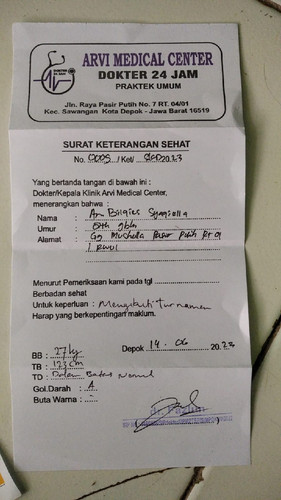 ARVI MEDICAL CENTER
DOKTER 24 JAM
PRAKTEK UMUM
Jln. Raya Pasir Putih No. 7 RT. 04/01
Kec. Sawangan Kota Depok - Jawa Barat 16519
SURAT KETERANGAN SEHAT
No. /Ket/ 2023
Yang bertanda tangan di bawah ini :
Dokter/Kepala Klinik Arvi Medical Center,
menerangkan bahwa :
Nama : An Bilqies
Umur :
Alamat : Gg Mushola Pasir Putih Rt 01
/ RW01
Menurut Pemeriksaan kami pada tgl
Berbadan sehat
Untuk keperluan : Mengikuti turnamen
Harap yang berkepentingan maklum.
Depok 14 . 06 2023
BB : 27 kg
TB : 123 cm
TD : Dalam Batas Normal
Gol.Darah : A
Buta Warna : -